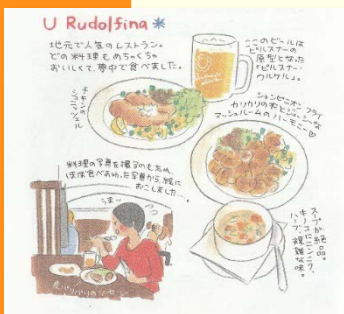 U Rudolfina *
地元で人気のレストラン。
どの料理もめちゃくちゃ
おいしくて、夢中で食べました。
ここのビールは
ピルスナーの
原型となった
「ピルスナー・
ウルケル」。
フライ
カリカリの衣とジューシーな
マッシュルームのハーモニー♡
料理の写真を撮るのも忘れ、
ほぼ食べおわった写真から、絵に
おこしました…。
うまー
スープが絶品。
キノコにニンニク、
ハーブ、複雑な味。